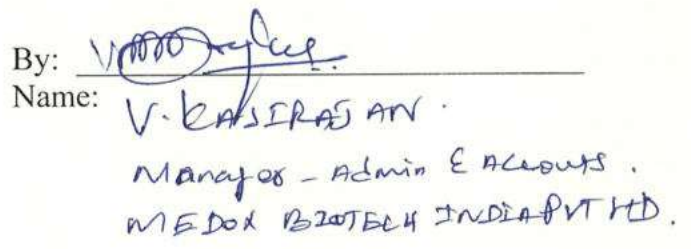 By:
Name: V. KASIRAJAN.
Manager - Admin & Accounts.
MEDOX BIOTECH INDIA PVT LTD.